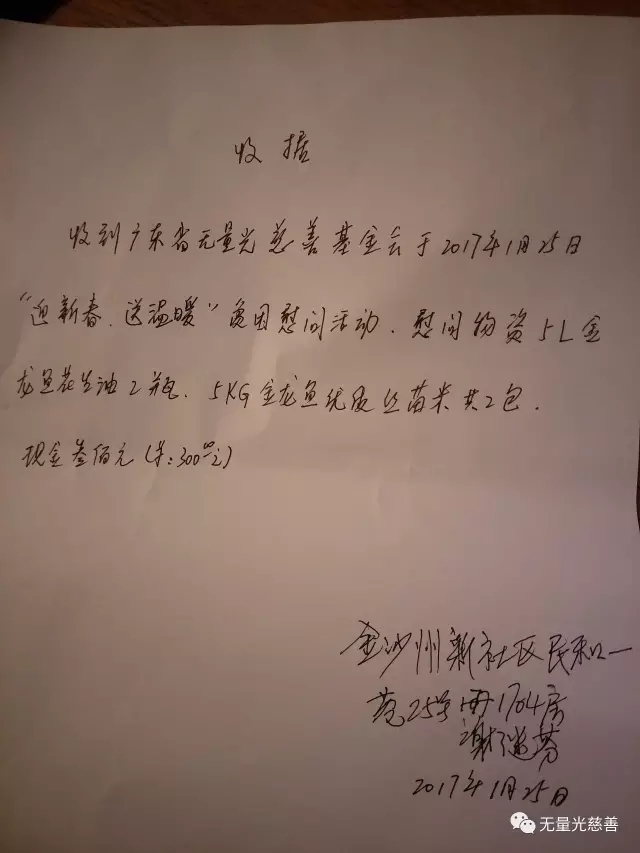 收据
收到广东省无量光慈善基金会于2017年1月25日
“迎新春、送温暖”贫困慰问活动、慰问物资5L金
龙鱼花生油2瓶、5KG金龙鱼优质丝苗米共2包、
现金叁佰元(¥:300元)
金沙州新社区民和一
苑25号 1704房
谢 芳
2017年1月25日
无量光慈善